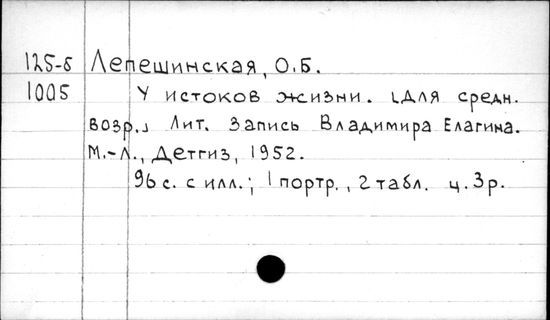 125-б Лепешинская, О.Б.
1005 У истоков жизни. [Для средн.
возр.] Лит. запись Владимира Елагина.
М.-Л., Детгиз, 1952.
96 с. с илл.; 1 портр., 2 табл. ц. 3 р.